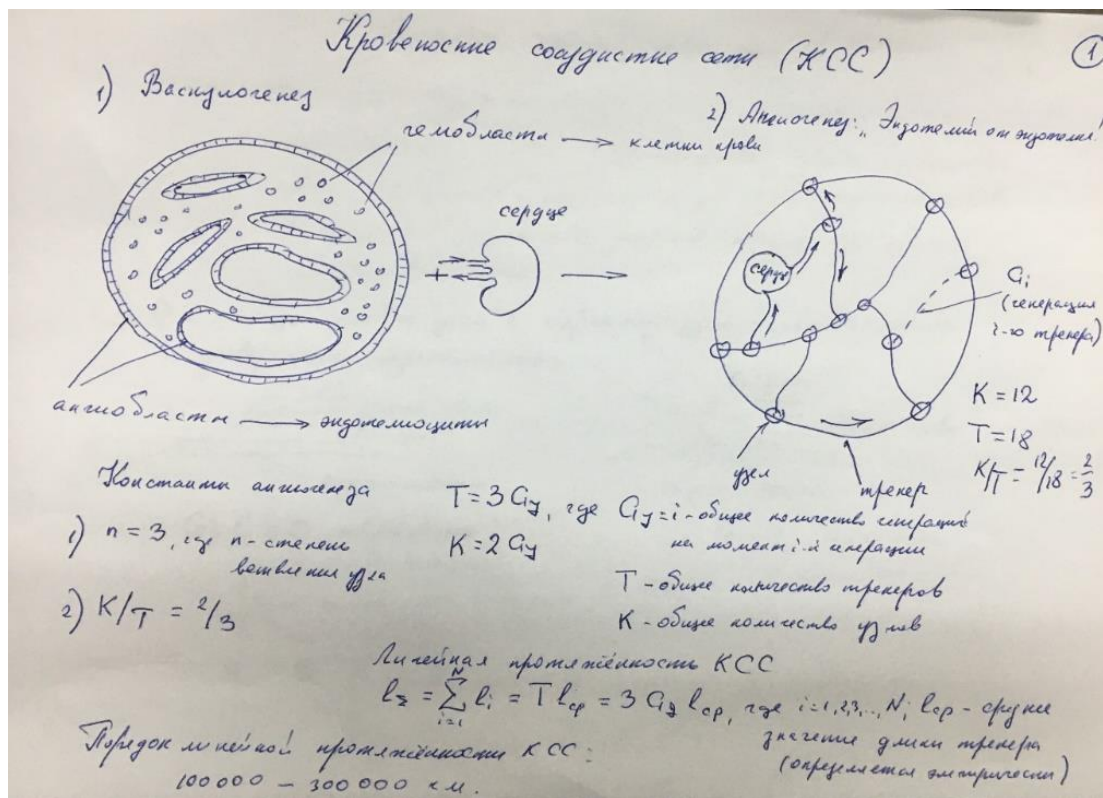 Кровеносные сосудистые сети (КСС)
1
1) Васкулогенез
гемобласты → клетки крови
сердце
+
ангиобласты → эндотелиоциты
2) Ангиогенез: „Эндотелий от эндотелия"
сердце
Gi
(генерация
i-го трекера)
K = 12
T = 18
K/T = 12/18 = 2/3
узел
трекер
Константы ангиогенеза
1) n = 3, где n - степень
ветвления узла
2) K/T = 2/3
T = 3 Gy, где Gy = i - общее количество генераций
на момент i-й генерации
K = 2 Gy
T - общее количество трекеров
K - общее количество узлов
Линейная протяжённость КСС
l_Σ = Σ_{i=1}^{N} l_i = T l_ср = 3 Gy l_ср, где i=1,2,3,..,N; l_ср - среднее
значение длины трекера
(определяется эмпирически)
Порядок линейной протяжённости КСС:
100 000 – 300 000 км.